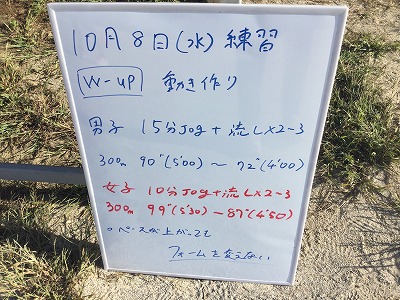 10月8日(水) 練習
W-up 動き作り
男子 15分Jog+流しx2-3
300m 90"(5'00) ~ 72"(4'00)
女子 10分Jog+流しx2-3
300m 99"(5'30) - 87"(4'50)
○ペースが上がっても
フォームを変えない